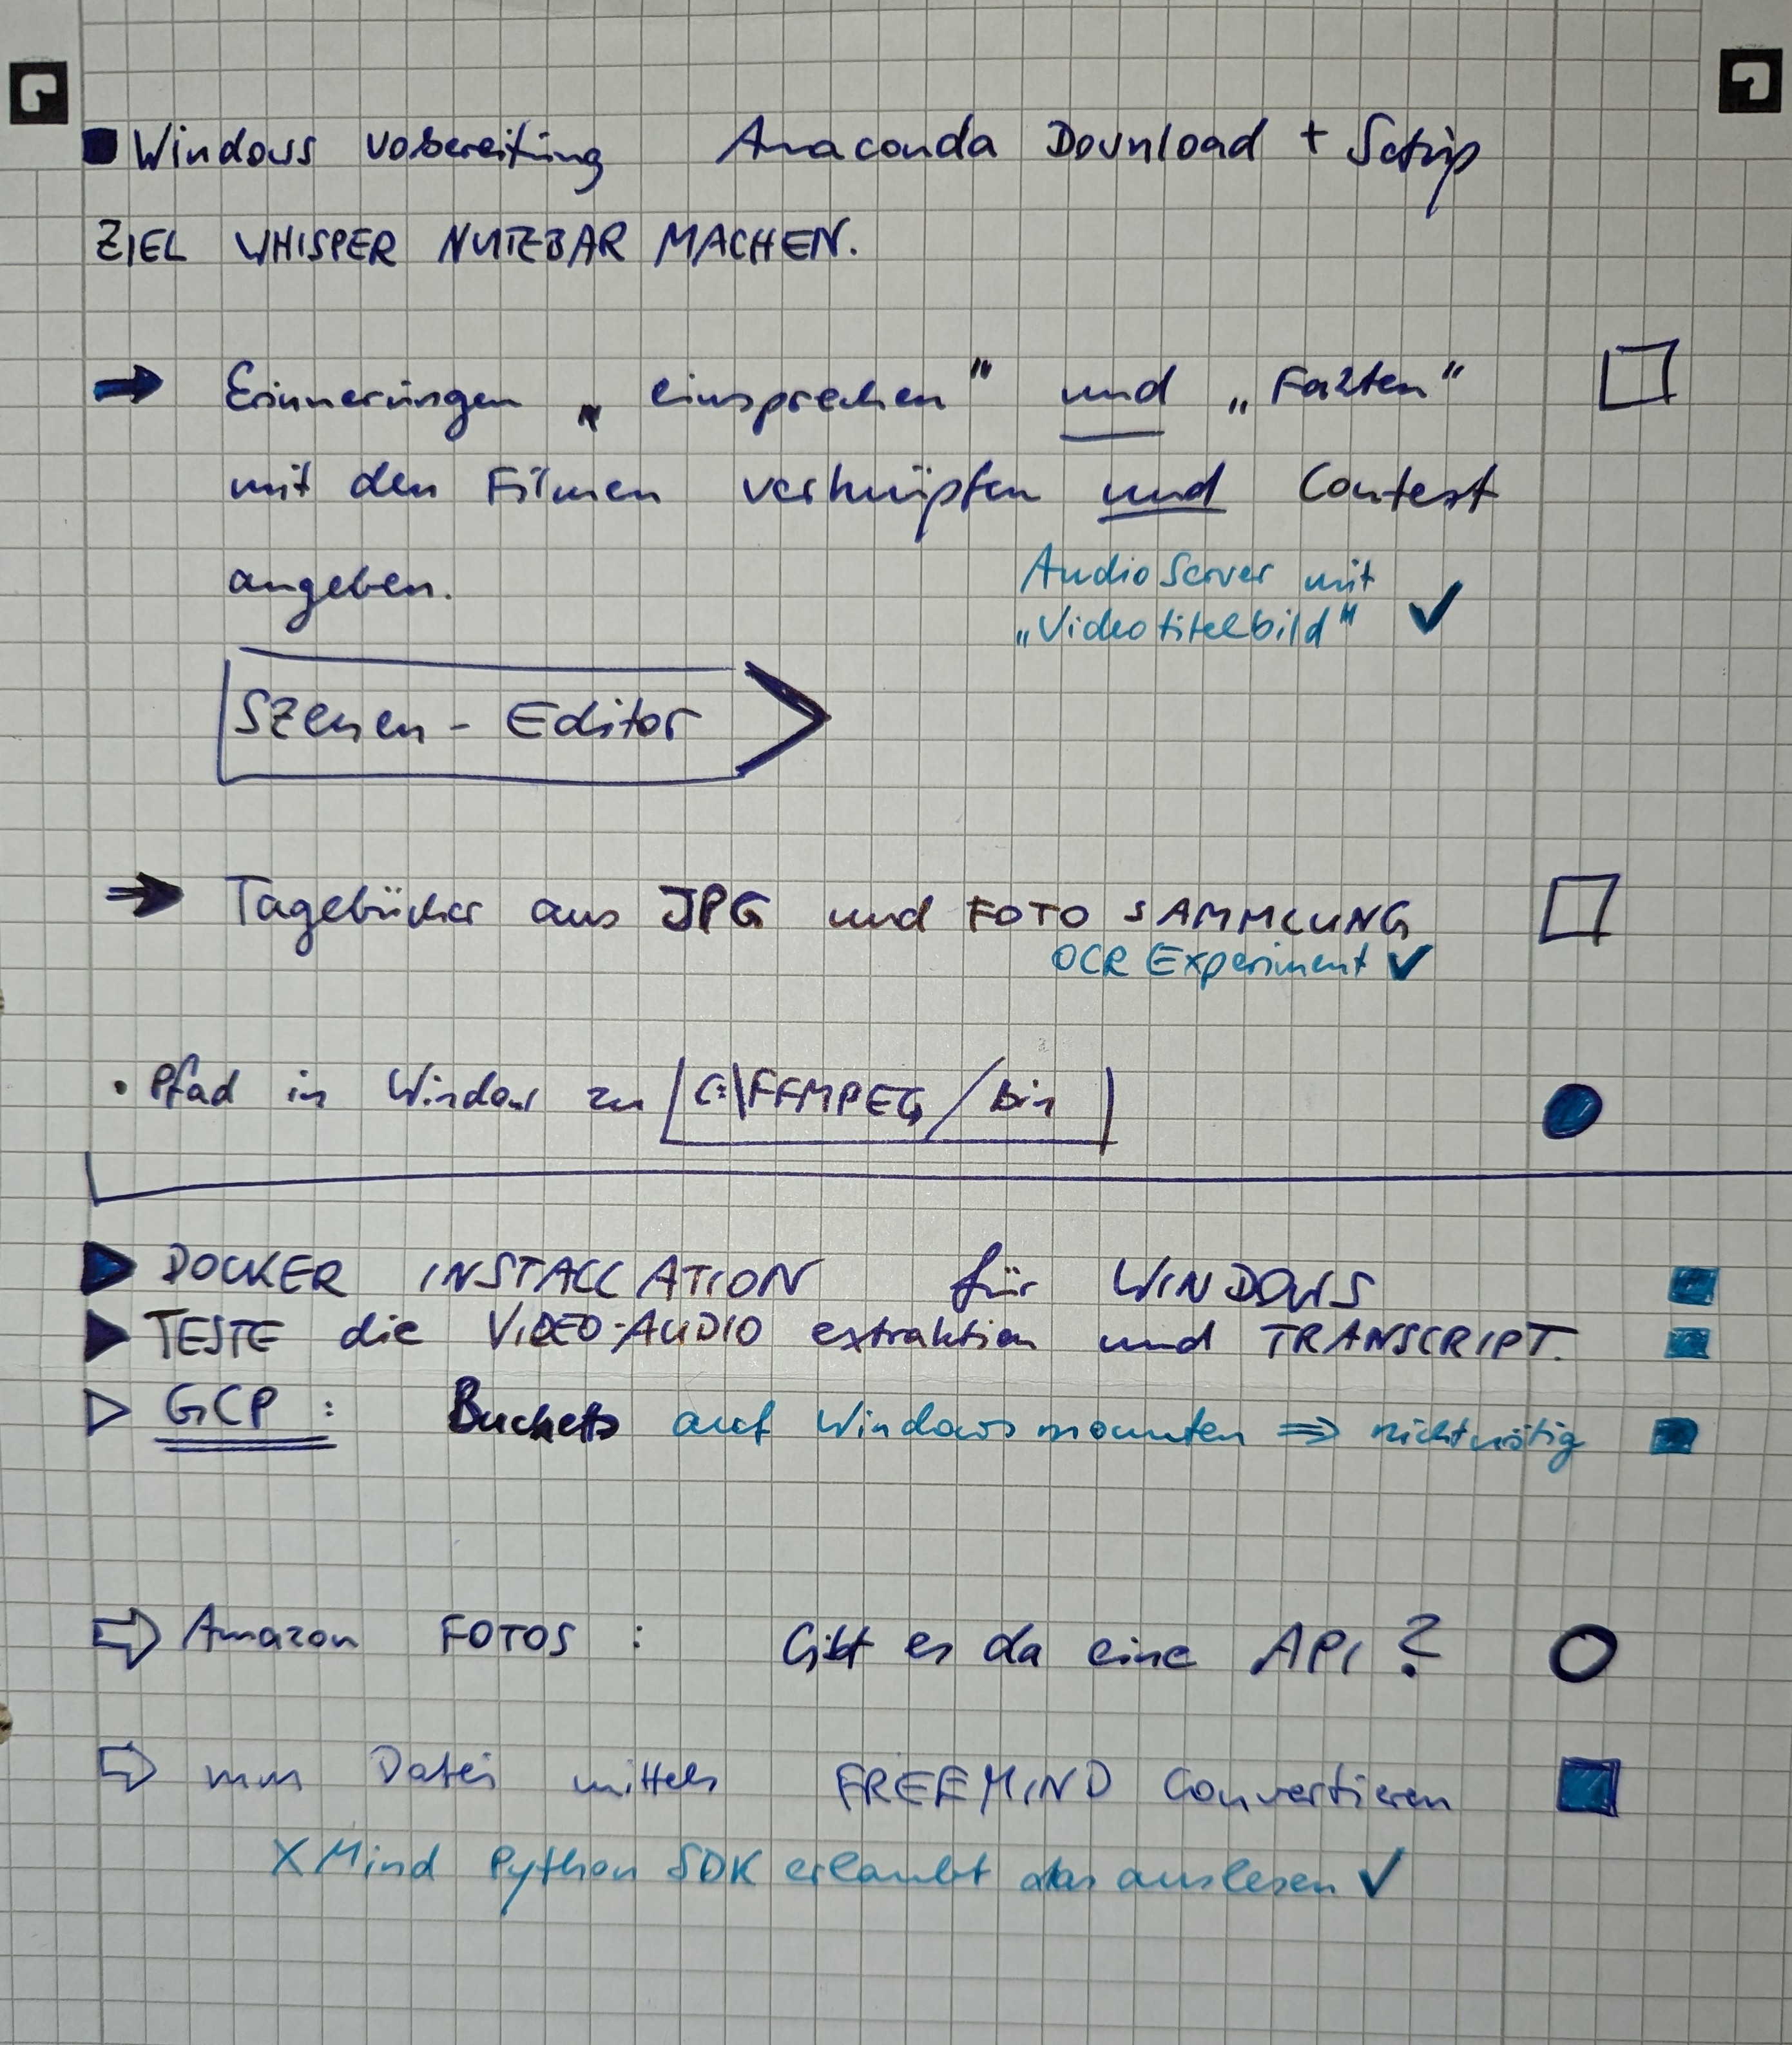 Windows vorbereitung Anaconda Download + Setup
ZIEL WHISPER NUTZBAR MACHEN.
Erinnerungen „einsprechen" und „Fakten"
mit den Filmen verknüpfen und Context
angeben.
Audio Server mit
„Videotitelbild" ✓
Szenen - Editor
Tagebücher aus JPG und FOTO SAMMLUNG
OCR Experiment ✓
• Pfad in Windows zu C:\FFMPEG/bin
DOCKER INSTALLATION für WINDOWS
TESTE die VIDEO-AUDIO extraktion und TRANSCRIPT.
GCP: Buckets auf Windows mounten ⇒ nicht nötig
Amazon FOTOS : Gibt es da eine API ?
mm Datei mittels FREEMIND Convertieren
XMind Python SDK erlaubt das auslesen ✓